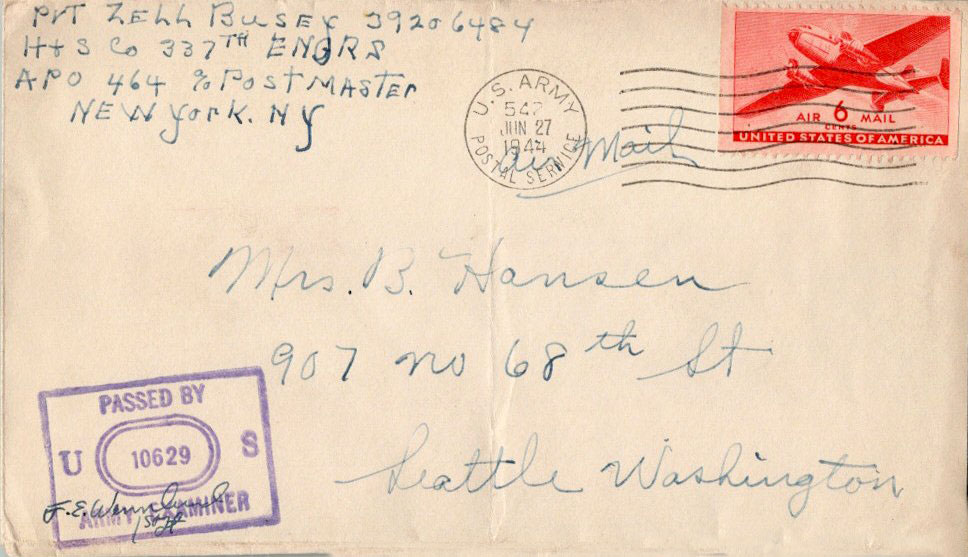 PVT ZELL BUSEY 39206484
H+S Co 337TH ENGRS
APO 464 % POSTMASTER
NEW York. NY
U.S. ARMY
547
JUN 27
1944
POSTAL SERVICE
Air Mail
AIR 6 MAIL
CENTS
UNITED STATES OF AMERICA
Mrs. B. Hansen
907 no 68th St
Seattle Washington
PASSED BY
U 10629 S
ARMY EXAMINER
F.E.
1st Lt